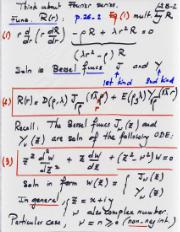 Think about Fourier series.
Func. R(r): p.26.2 Eq.(1) mult. by R
(1) r d/dr (r dR/dr) - ρR + λr²R = 0
(λr² - ρ)R
Soln is Bessel funcs J and Y
1st kind 2nd kind
(2) R(r) = D(ρ,λ) J_√ρ(√λ r) + E(ρ,λ) Y_√ρ(√λ r)
Recall: The Bessel funcs J_w(z) and
Y_w(z) are soln of the following ODE:
(3) z² d²W/dz² + z dW/dz + (z² - w²)W = 0
Soln in form W(z) = { J_w(z) Y_w(z)
In general z = x+iy
w also complex number.
Particular case, w = n ≥ 0 (non-neg int.)